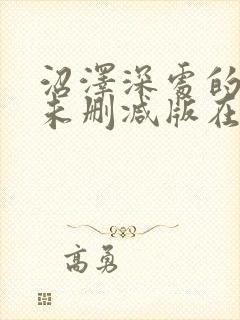 沼澤深處的
未刪減版在
高勇